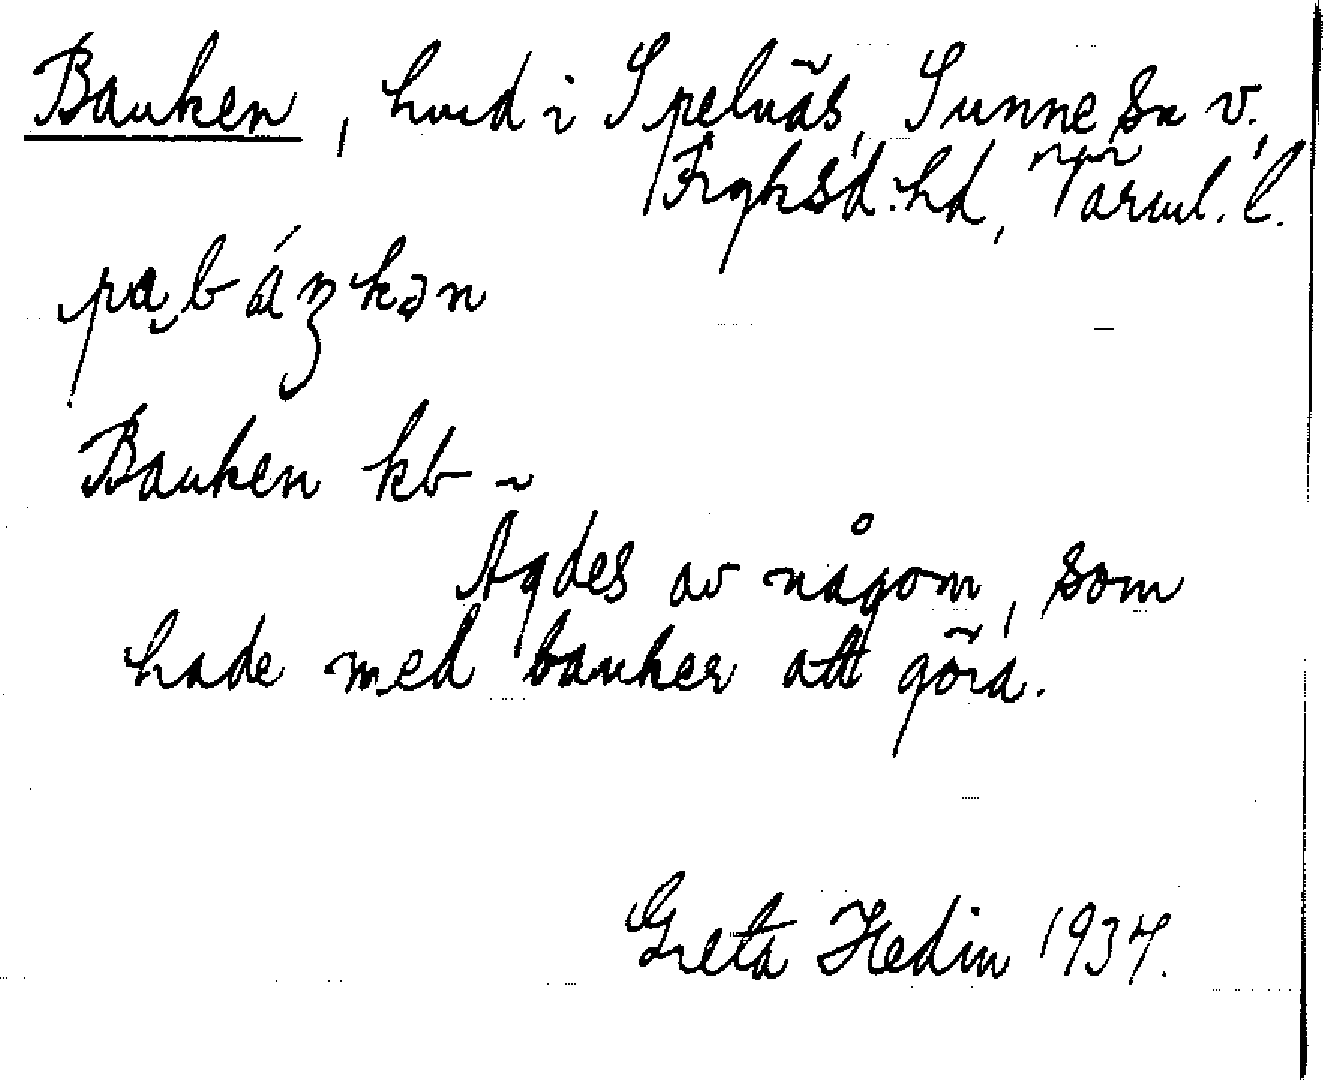 Banken, hmd i Spelnäs, Sunne sn v.,
Fryksd. hd, Värml. l.
Banken kb -
Ägdes av någon, som
hade med banker att göra.
Greta Hedin 1937.